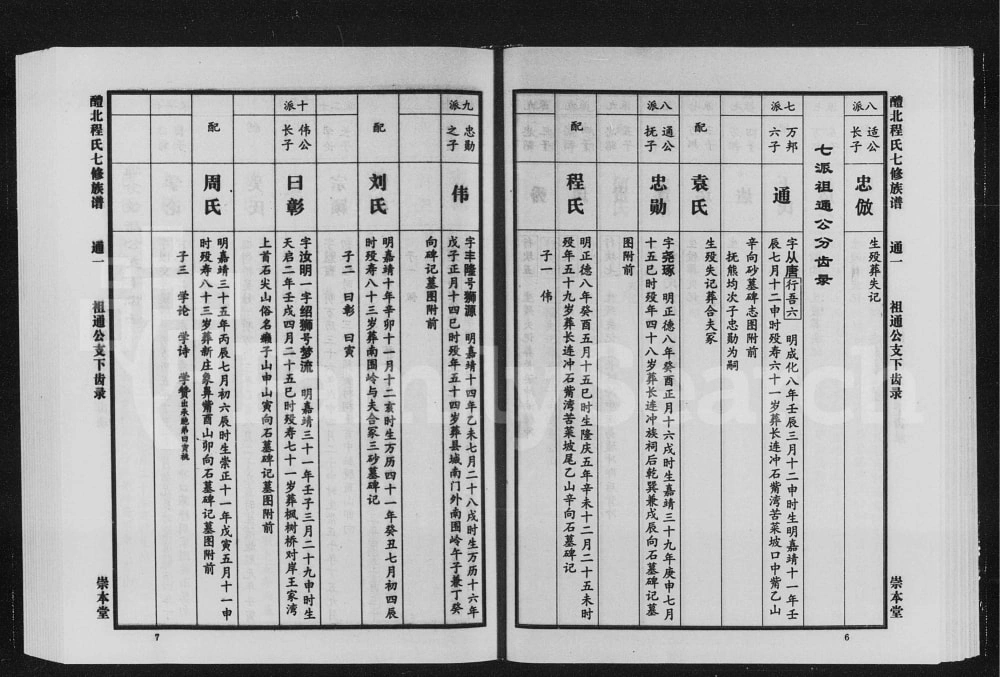 醴北程氏七修族谱 通一 祖通公支下齿录 崇本堂
八派 适公长子
忠倣
生殁葬失记
七派祖通公分齿录
七派 万邦六子
通
字从唐行吾六 明成化八年壬辰三月十二申时生明嘉靖十一年壬
辰七月十二申时殁寿六十一岁葬长连冲石觜湾苦菜坡口中觜乙山
辛向砂墓碑志图附前
抚熊均次子忠勋为嗣
配
袁氏
生殁失记葬合夫冢
八派 通公抚子
忠勋
字尧琢 明正德八年癸酉正月十六戌时生嘉靖三十九年庚申七月
十五巳时殁年四十八岁葬长连冲族祠后乾巽兼戌辰向石墓碑记墓
图附前
配
程氏
明正德八年癸酉五月十五巳时生隆庆五年辛未十二月二十五未时
殁年五十九岁葬长连冲石觜湾苦菜坡尾乙山辛向石墓碑记
子一 伟
6
九派 忠勋之子
伟
字丰隆号狮源 明嘉靖十四年乙未七月二十八戌时生万历十六年
戊子正月十四巳时殁年五十四岁葬县城南门外南围岭午子兼丁癸
向碑记墓图附前
配
刘氏
明嘉靖十年辛卯十一月十二亥时生万历四十一年癸丑七月初四辰
时殁寿八十三岁葬南围岭与夫合冢三砂墓碑记
子二 曰彰 曰寅
十派 伟公长子
曰彰
字汝明一字绍狮号梦流 明嘉靖三十一年壬子三月二十九申时生
天启二年壬戌四月二十五巳时殁寿七十一岁葬枫树桥对岸王家湾
上首石尖山俗名癞子山申山寅向石墓碑记墓图附前
配
周氏
明嘉靖三十五年丙辰七月初六辰时生崇正十一年戊寅五月十一申
时殁寿八十三岁葬新庄象鼻觜酉山卯向石墓碑记墓图附前
子三 学论 学诗 学赞出承胞弟曰寅桃
醴北程氏七修族谱 通一 祖通公支下齿录 崇本堂
7
FamilySearch